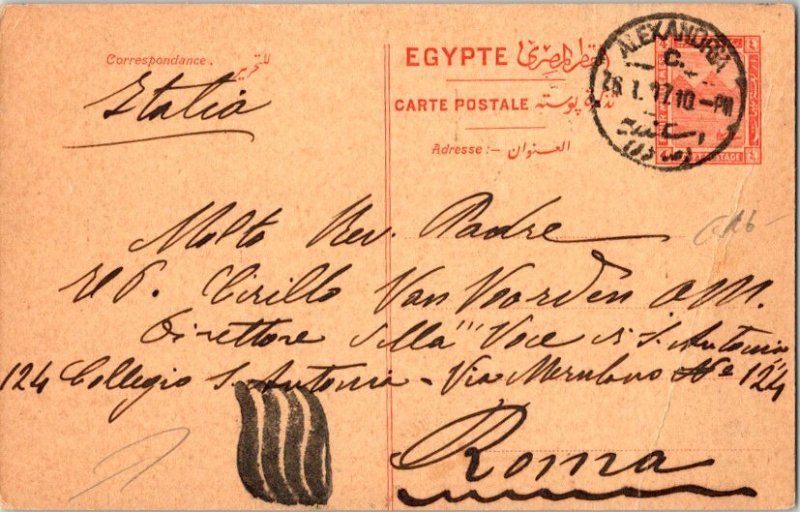 Correspondance.
Italia
EGYPTE القطر المصرى
CARTE POSTALE تذكرة بوسته
Adresse:— العنوان
ALEXANDRIA
C.
26.1.17.10-PM
Molto Rev. Padre
P. Cirillo Van Noorden OM.
Direttore della "Voce di S. Antonio
124 Collegio S. Antonio - Via Merulana No 124
Roma
POSTAGE